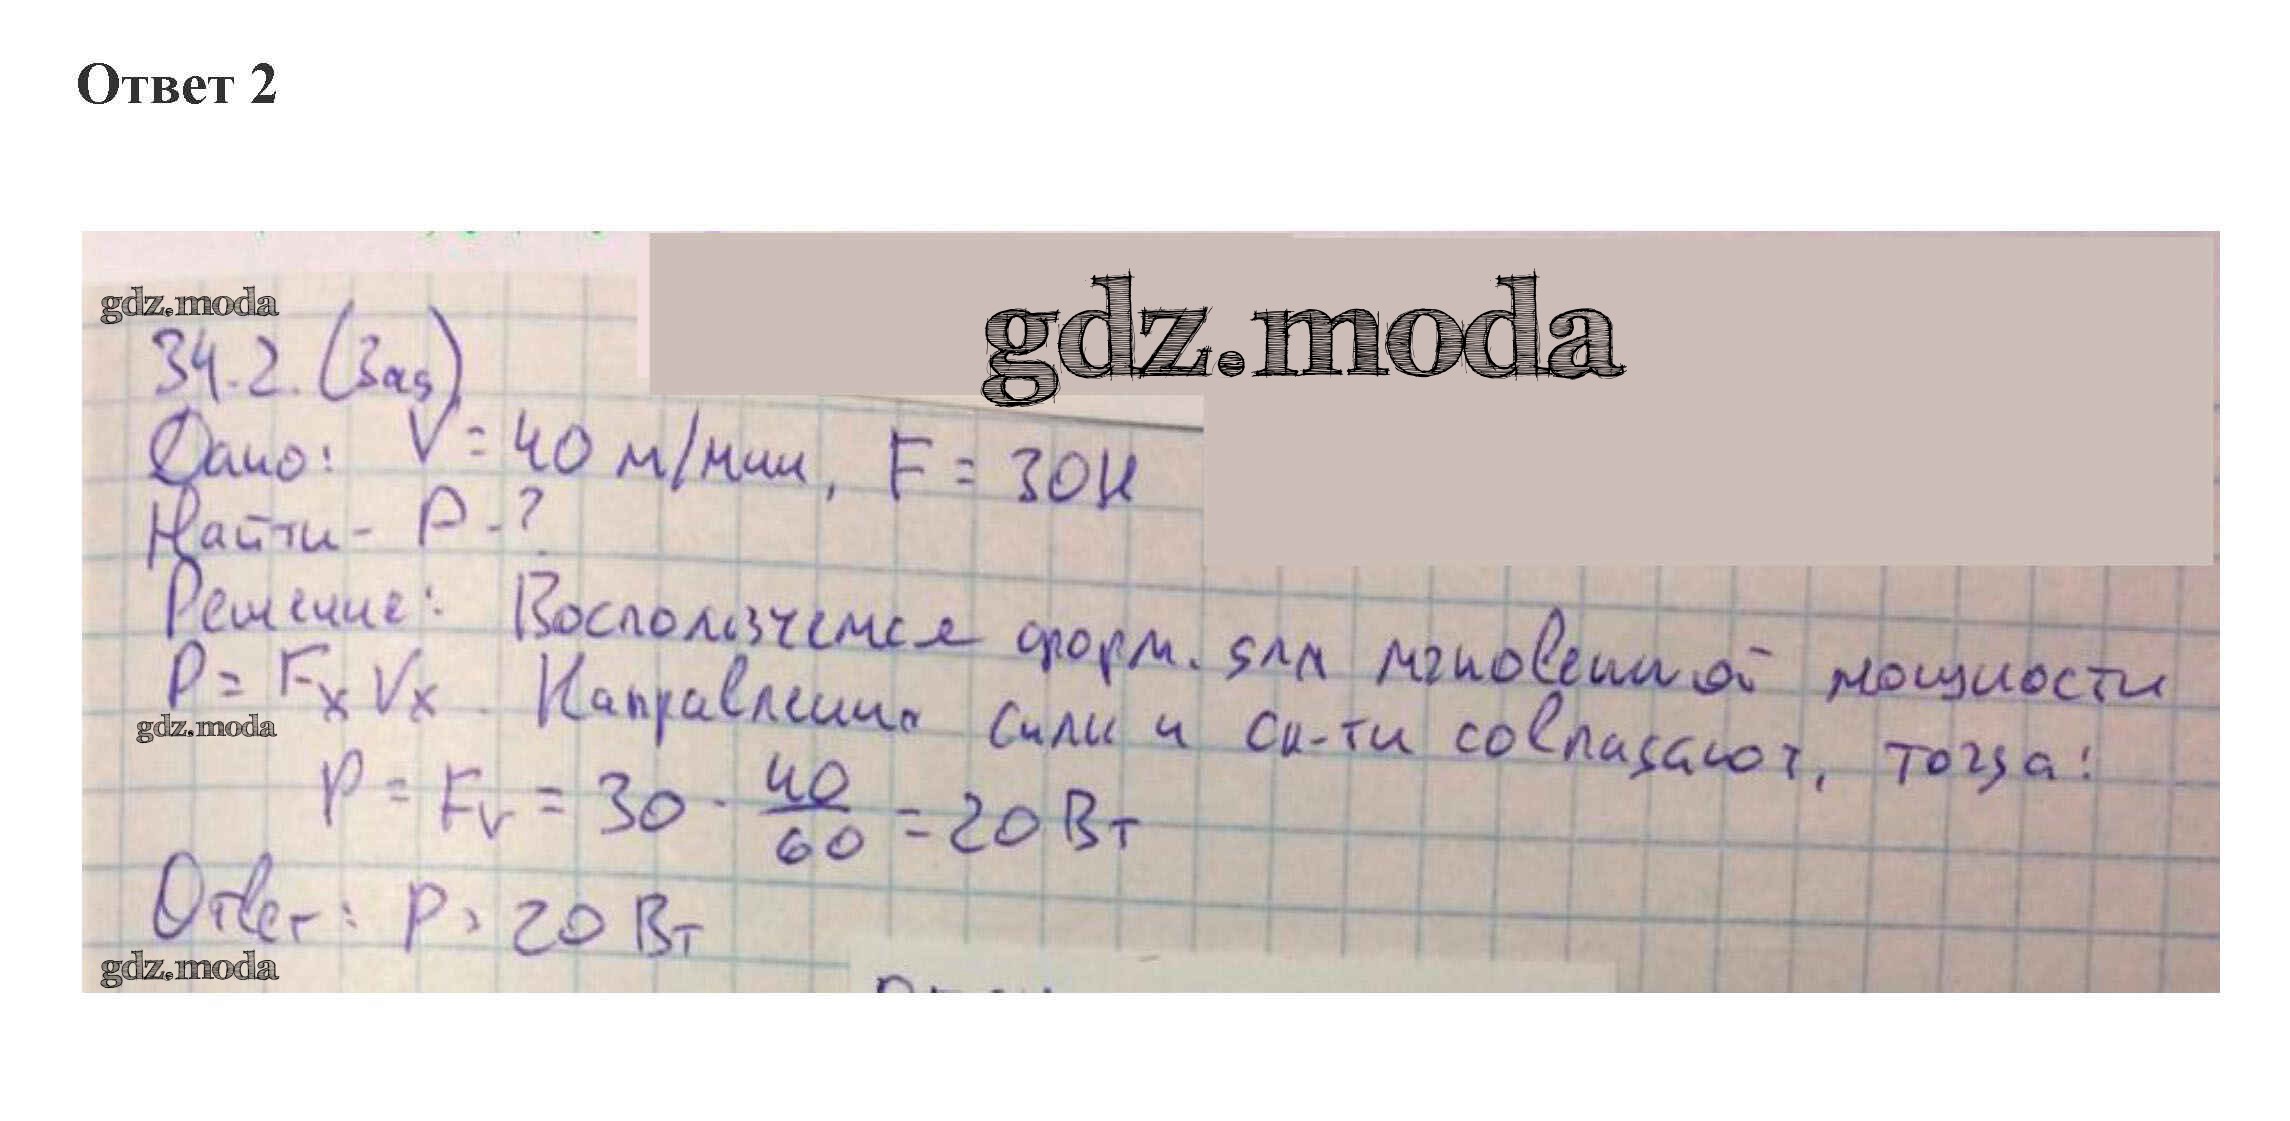 Ответ 2
gdz.moda
gdz.moda
34.2. (Зад)
Дано: V = 40 м/мин, F = 30Н
Найти - P - ?
Решение: Воспользуемся форм. для мгновенной мощности
P = Fx Vx. Направления силы и ск-ти совпадают, тогда:
gdz.moda
P = Fv = 30 · 40/60 = 20 Вт
Ответ: P = 20 Вт
gdz.moda